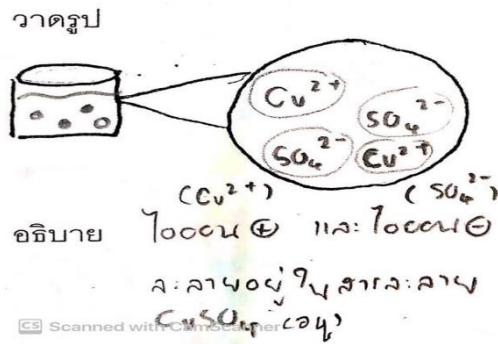 วาดรูป
Cu²⁺
SO₄²⁻
SO₄²⁻
Cu²⁺
(Cu²⁺) (SO₄²⁻)
อธิบาย ไอออน ⊕ และ ไอออน ⊖
ละลายอยู่ในสารละลาย
CuSO₄
CS Scanned with CamScanner